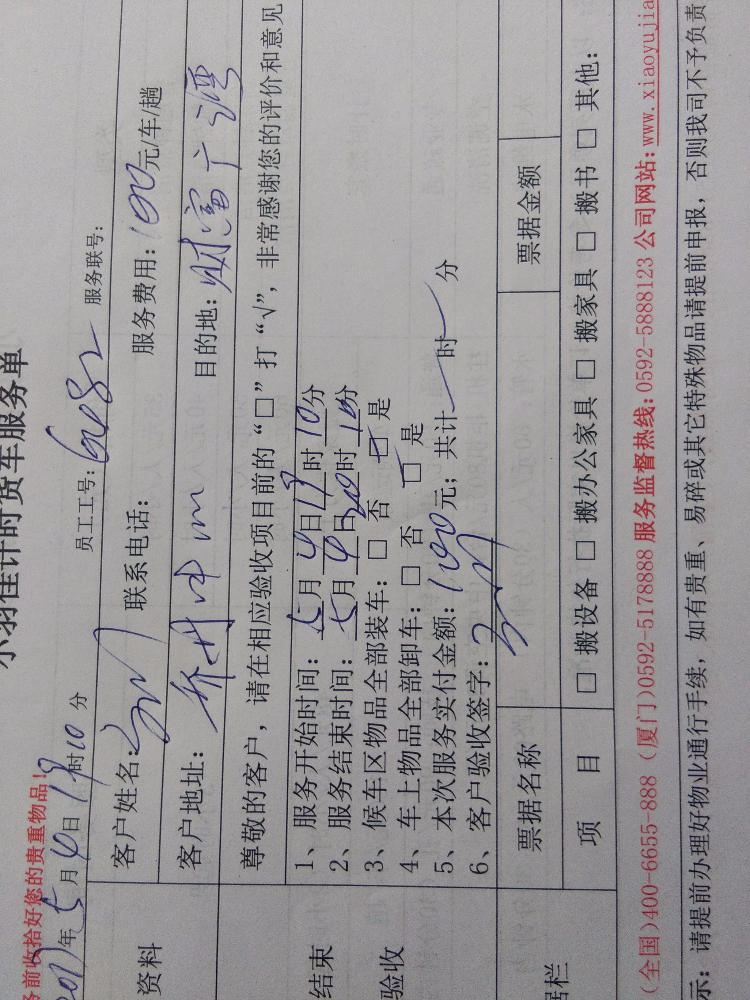 小羽佳计时货车服务单
务前收拾好您的贵重物品!
年5月4日19时10分 员工工号: 服务联号:
资料
客户姓名: 联系电话: 服务费用:100元/车/趟
客户地址: 目的地:财富广湾
尊敬的客户,请在相应验收项目前的“□”打“√”,非常感谢您的评价和意见
结束
验收
1、服务开始时间:5月4日19时10分
2、服务结束时间:5月4日20时10分
3、候车区物品全部装车:□ 否 □ 是
4、车上物品全部卸车:□ 否 □ 是
5、本次服务实付金额:100元;共计 时 分
6、客户验收签字:
据栏
票据名称 票据金额
项 目 □ 搬设备 □ 搬办公家具 □ 搬家具 □ 搬书 □ 其他:
(全国)400-6655-888 (厦门)0592-5178888 服务监督热线:0592-5888123 公司网站:www.xiaoyujia
示:请提前办理好物业通行手续,如有贵重、易碎或其它特殊物品请提前申报,否则我司不予负责